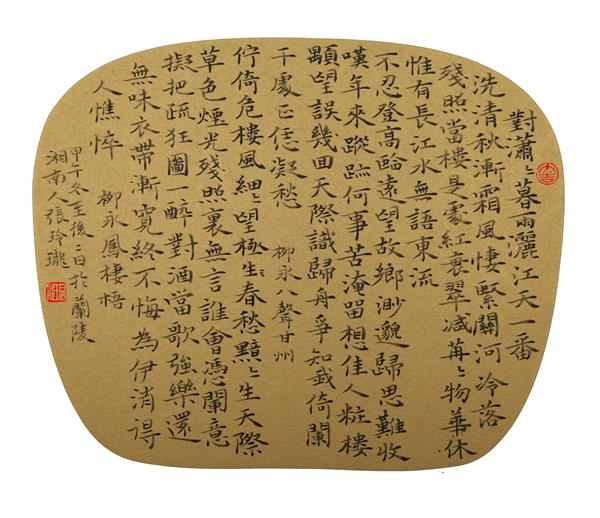 對蕭〻暮雨灑江天一番
洗清秋漸霜風悽緊關河冷落
殘照當樓是處紅衰翠減苒〻物華休
惟有長江水無語東流
不忍登高臨遠望故鄉渺邈歸思難收
嘆年來蹤跡何事苦淹留想佳人粧樓
顒望誤幾回天際識歸舟爭知我倚闌
干處正恁凝愁 柳永八聲甘州
佇倚危樓風細〻望極〻春愁黯〻生天際
草色煙光殘照裏無言誰會憑闌意
擬把疏狂圖一醉對酒當歌強樂還
無味衣帶漸寬終不悔為伊消得
人憔悴 柳永鳳棲梧
甲午冬至後二日於蘭陵
湘南人張玲瓏